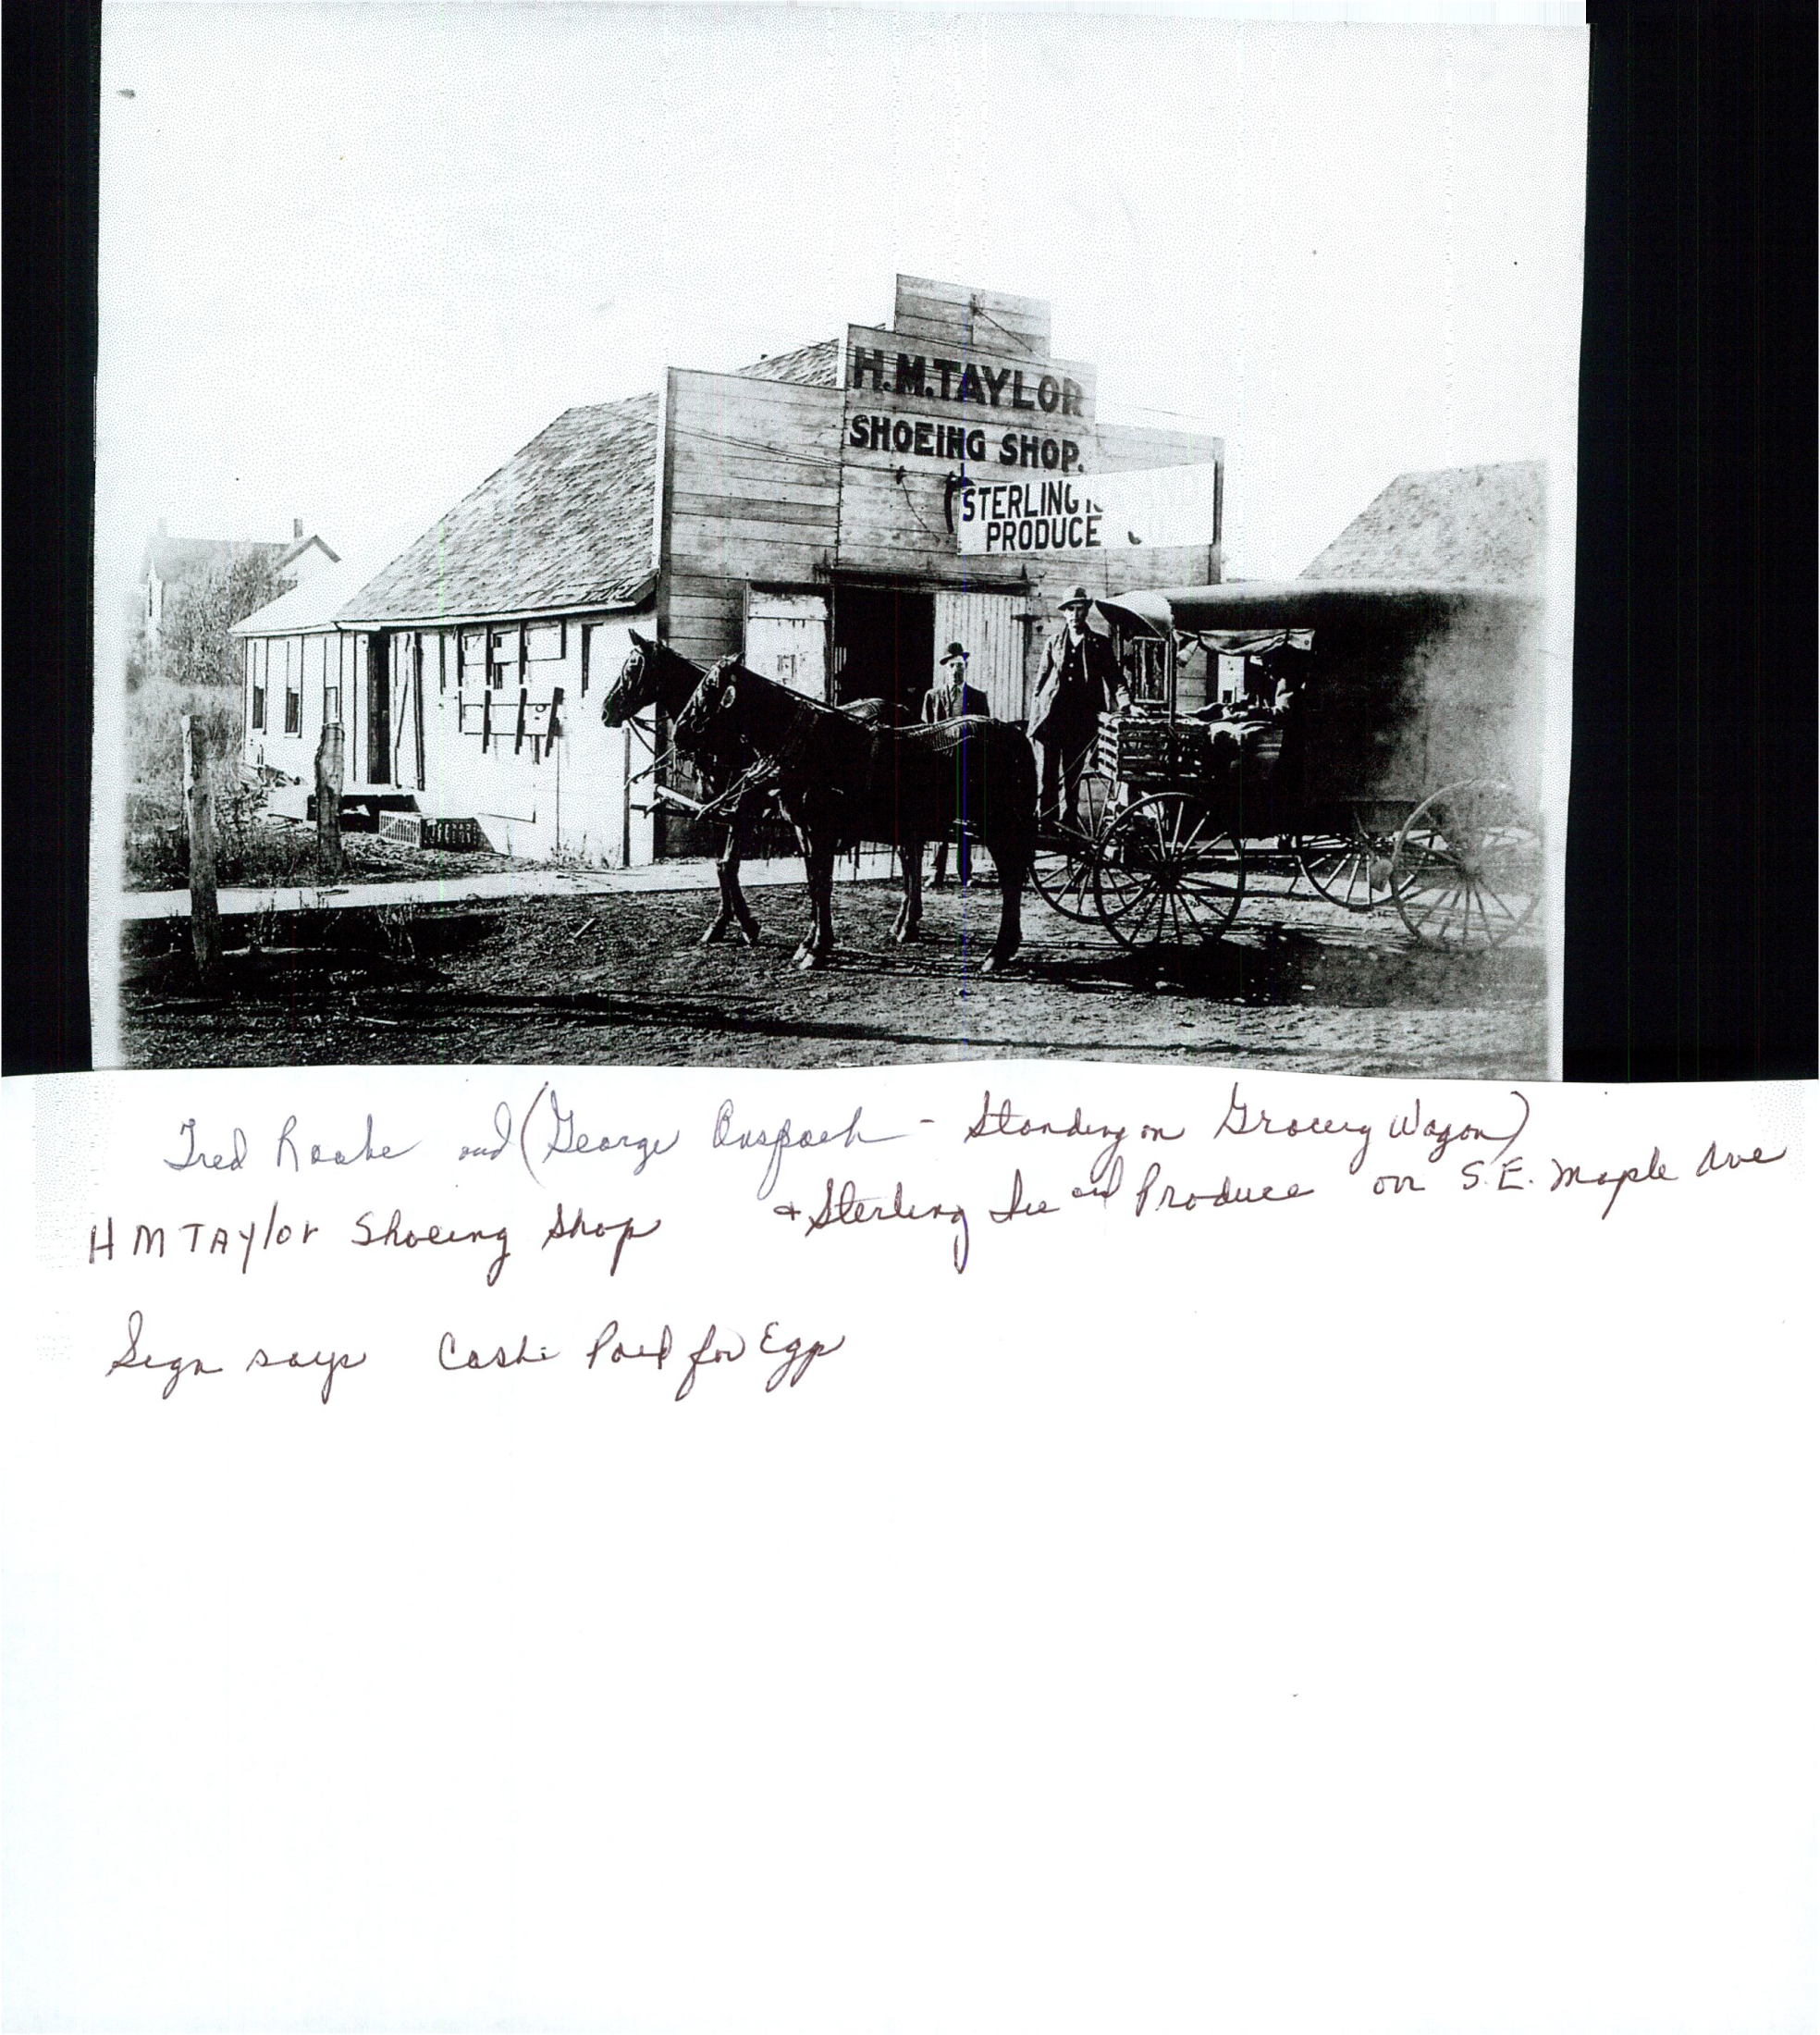 H.M.TAYLOR
SHOEING SHOP.
STERLING
PRODUCE
Fred Raabe and (George Anspach - Standing on Grocery Wagon)
H M TAylor Shoeing Shop & Sterling Ice and Produce on S.E. Maple Ave
Sign says Cash Paid for Eggs